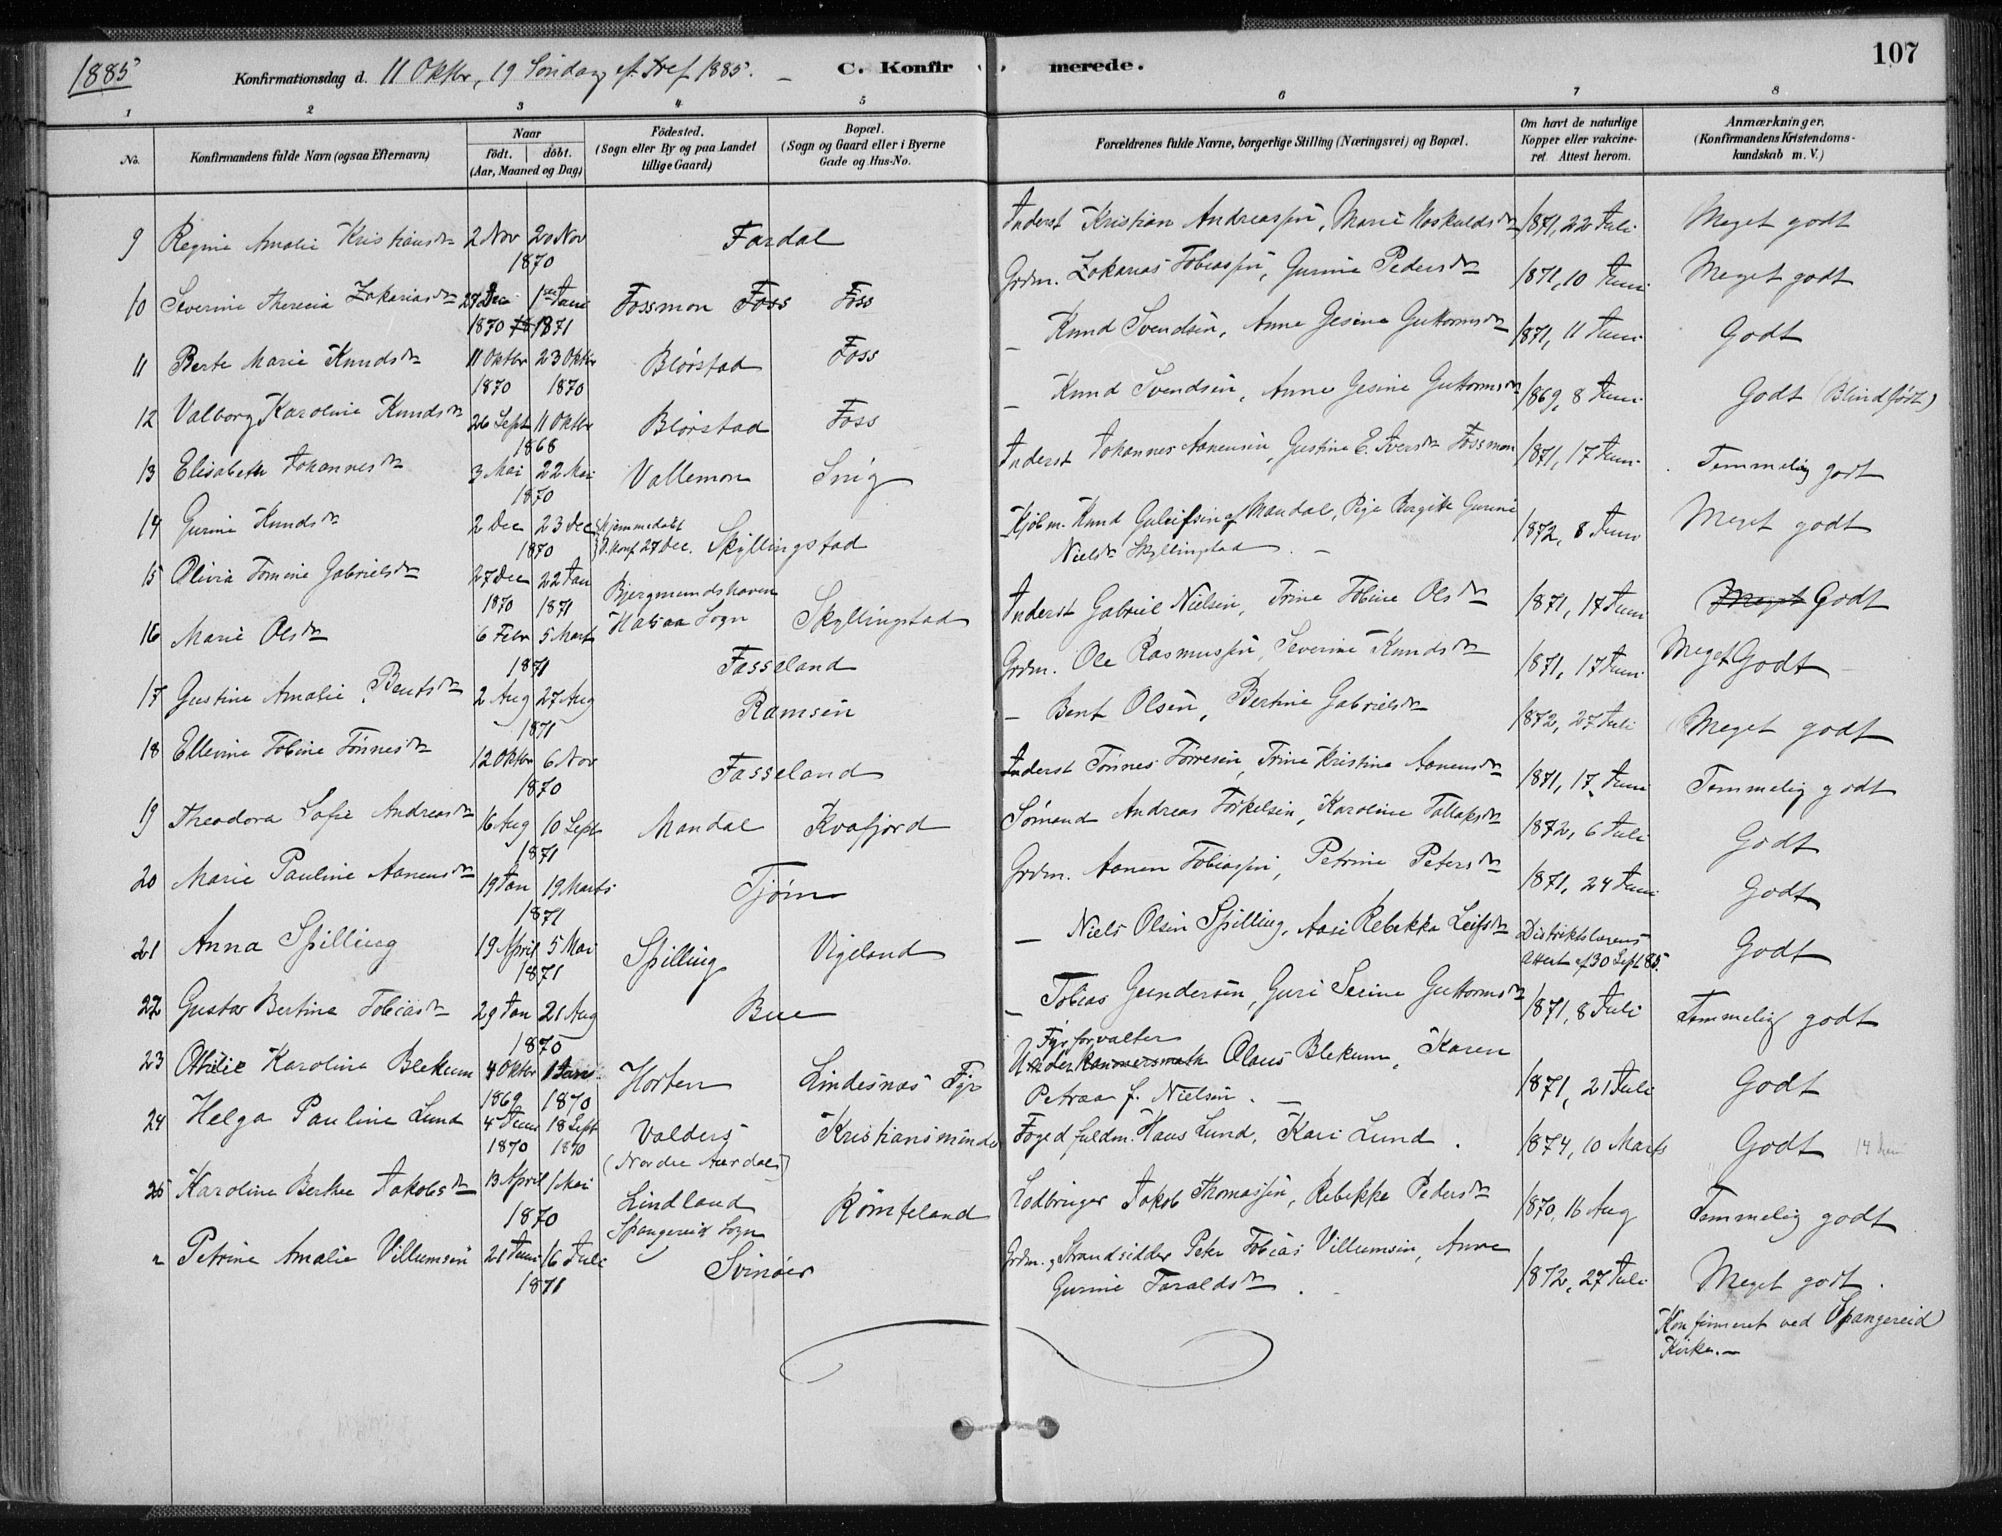 1885
Konfirmationsdag d. 11 Oktbr, 19 Søndag eft Tref 1885. –
C. Konfirmerede.
107
1 2 3 4 5 6 7 8
No.
Konfirmandens fulde Navn (ogsaa Efternavn)
Naar
født. | døbt.
(Aar, Maaned og Dag)
Födested.
(Sogn eller By og paa Landet
tillige Gaard)
Bopæl.
(Sogn og Gaard eller i Byerne
Gade og Hus-No.
Forældrenes fulde Navne, borgerlige Stilling (Næringsvei) og Bopæl.
Om havt de naturlige
Kopper eller vakcine-
ret. Attest herom.
Anmærkninger.
(Konfirmandens Kristendoms-
kundskab m. V.)
9 Regine Amalie Kristiansdtr 2 Nov 20 Nov 1870 Fardal Inderst Kristian Andreassen, Marie Hoskuldsdtr 1871, 22 Juli Meget godt
10 Severine Theresia Zakariasdtr 27 Dec 1870 1ste Jani 1871 Fossmon Foss Foss Grdm. Zakarias Tobiassen, Gurine Pedersdtr 1871, 10 Juni Meget godt
11 Berte Marie Knudsdtr 11 Oktbr 1870 23 Oktbr 1870 Blørstad Foss – Knud Svendsen, Anne Gesine Guttormsdtr 1871, 11 Juni Godt
12 Valborg Karoline Knudsdtr 26 Sept 11 Oktbr 1868 Blørstad Foss – Knud Svendsen, Anne Gesine Guttormsdtr 1869, 8 Juni Godt (Blindfødt)
13 Elisabeth Johannesdtr 3 Mai 22 Mai 1870 Vallemon Snig Inderst Johannes Aanensen, Gustine E. Iversdtr Fossmon 1871, 17 Juni Temmelig godt
14 Gurine Knudsdtr 2 Dec 23 Dec 1870 Hjemmedøbt
Konf. 27 Dec. Skyllingstad Kjøbm. Knud Guleifsen af Mandal, Pige Bergitte Gurine
Nielsdtr Skyllingstad. – 1872, 8 Juni Meget godt
15 Olivia Tomine Gabrielsdtr 27 Dec 1870 22 Jan 1871 Bjergmundshaven
Halsaa Sogn Skyllingstad Inderst Gabriel Nielsen, Trine Tobine Olsdtr 1871, 17 Juni Meget Godt
16 Marie Olsdtr 6 Febr 5 Marts 1871 Fasseland Grdm. Ole Rasmussen, Severine Knudsdtr 1871, 17 Juni Meget Godt –
17 Gustine Amalie Bentsdtr 2 Aug 27 Aug 1871 Ramsøn – Bent Olsen, Bertine Gabrielsdtr 1872, 27 Juli Meget godt
18 Ellevine Tobine Tønnesdtr 12 Oktbr 6 Nov 1870 Fasseland Inderst Tønnes Tørresen, Trine Kristine Aanensdtr 1871, 17 Juni Temmelig godt
19 Theodora Sofie Andreasdtr 16 Aug 10 Sept 1871 Mandal Kvafjord Sømand Andreas Torkelsen, Karoline Tallaksdtr 1872, 6 Juli Godt
20 Marie Pauline Aanensdtr 19 Jan 19 Marts 1871 Tjørn Grdm. Aanen Tobiassen, Petrine Petersdtr 1871, 24 Juni Godt
21 Anna Spilling 19 April 5 Mai 1871 Spilling Vigeland – Niels Olsen Spilling, Aase Rebekka Leifsdtr Distriktslægens
Attest af 30 Sept 85. Godt
22 Gustav Bertine Tobiasdtr 29 Jan 21 Aug 1870 Bue – Tobias Gundersen, Guri Serine Guttormsdtr 1871, 8 Juli Temmelig godt
23 Othilie Karoline Blekum 4 Oktbr 1869 1 Jani 1870 Horten Lindesnæs Fyr Fyrforvalter
Underkanonersmath Olaus Blekum, Karen
Petraa f. Nielsen. – 1871, 21 Juli Godt
24 Helga Pauline Lund 4 Juni 1870 18 Sept 1870 Valders
(Nordre Aurdal) Kristiansminde Foged fuldm. Hans Lund, Kari Lund. 1874, 10 Marts Godt
25 Karoline Berthe Jakobsdtr 13 April 1 Mai 1870 Lindland
Spangereid Sogn Rømteland Lodbringer Jakob Thomassen, Rebekka Pedersdtr 1870, 16 Aug Temmelig godt
Petrine Amalie Villumsen 21 Juni 16 Juli 1871 Svinøer Grdm. & Strandsidder Peter Tobias Villumsen, Anne
Gurine Taraldsdtr. – 1872, 27 Juli Meget godt.
Konfirmeret ved Spangereid
Kirke. –